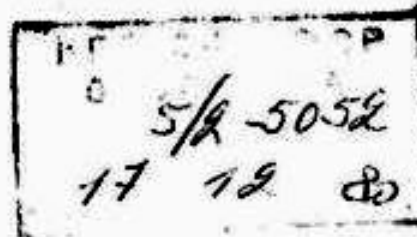 5/2-5052
17 12 80